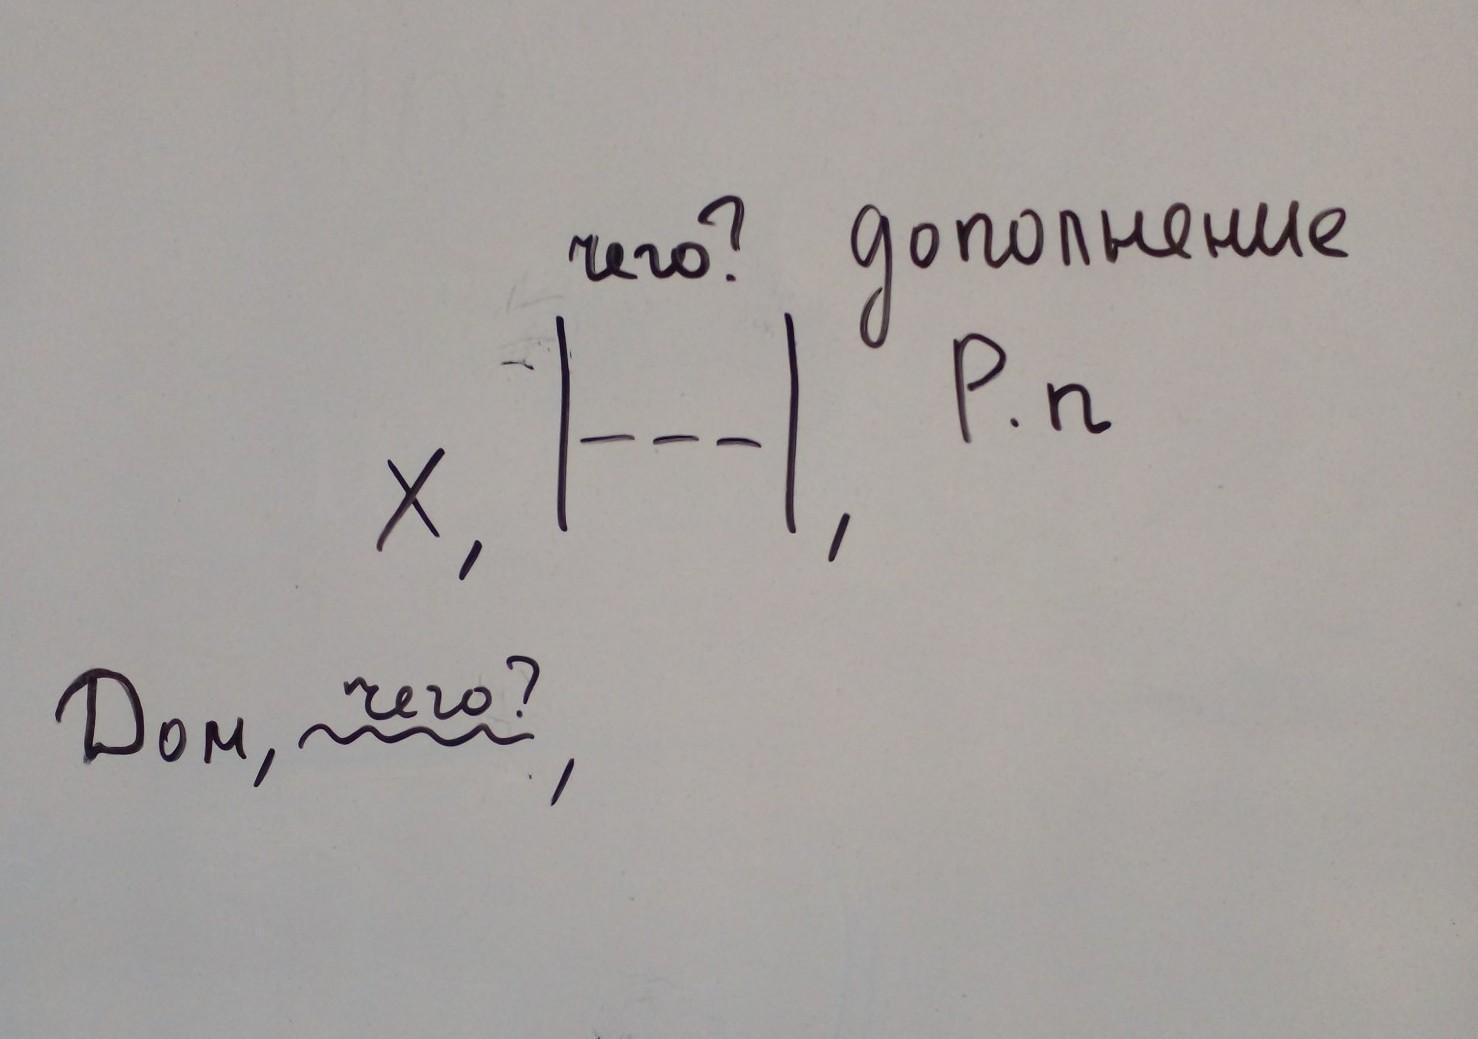 чего? дополнение
Р.п
X, |---|,
Дом, чего?,